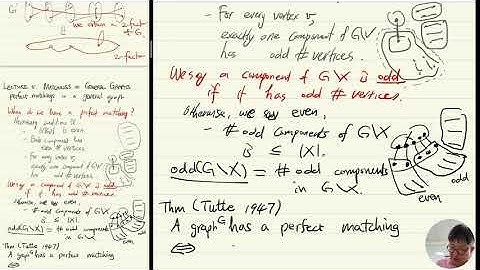 G:
we obtain a 2-factor
of G.
2-factor
LECTURE 5. MATCHINGS in GENERAL GRAPHS
perfect matchings in a general graph
When do we have a perfect matching?
Necessary conditions
is even.
Each component has
even # vertices
For every vertex v,
exactly one component of G\v
has odd # vertices
We say a component of G\X is odd
if it has odd # vertices.
Otherwise, we say even,
# odd components of G\X
is ≤ |X|.
odd(G\X) = # odd components
in G\X.
even
odd
Thm (Tutte 1947)
A graph G has a perfect matching
⇔
- For every vertex v,
exactly one component of G\v
has odd # vertices.
We say a component of G\X is odd
if it has odd # vertices.
Otherwise, we say even,
- # odd components of G\X
is ≤ |X|.
odd(G\X) = # odd components
in G\X.
even
odd
Thm (Tutte 1947)
A graph G has a perfect matching
⇔